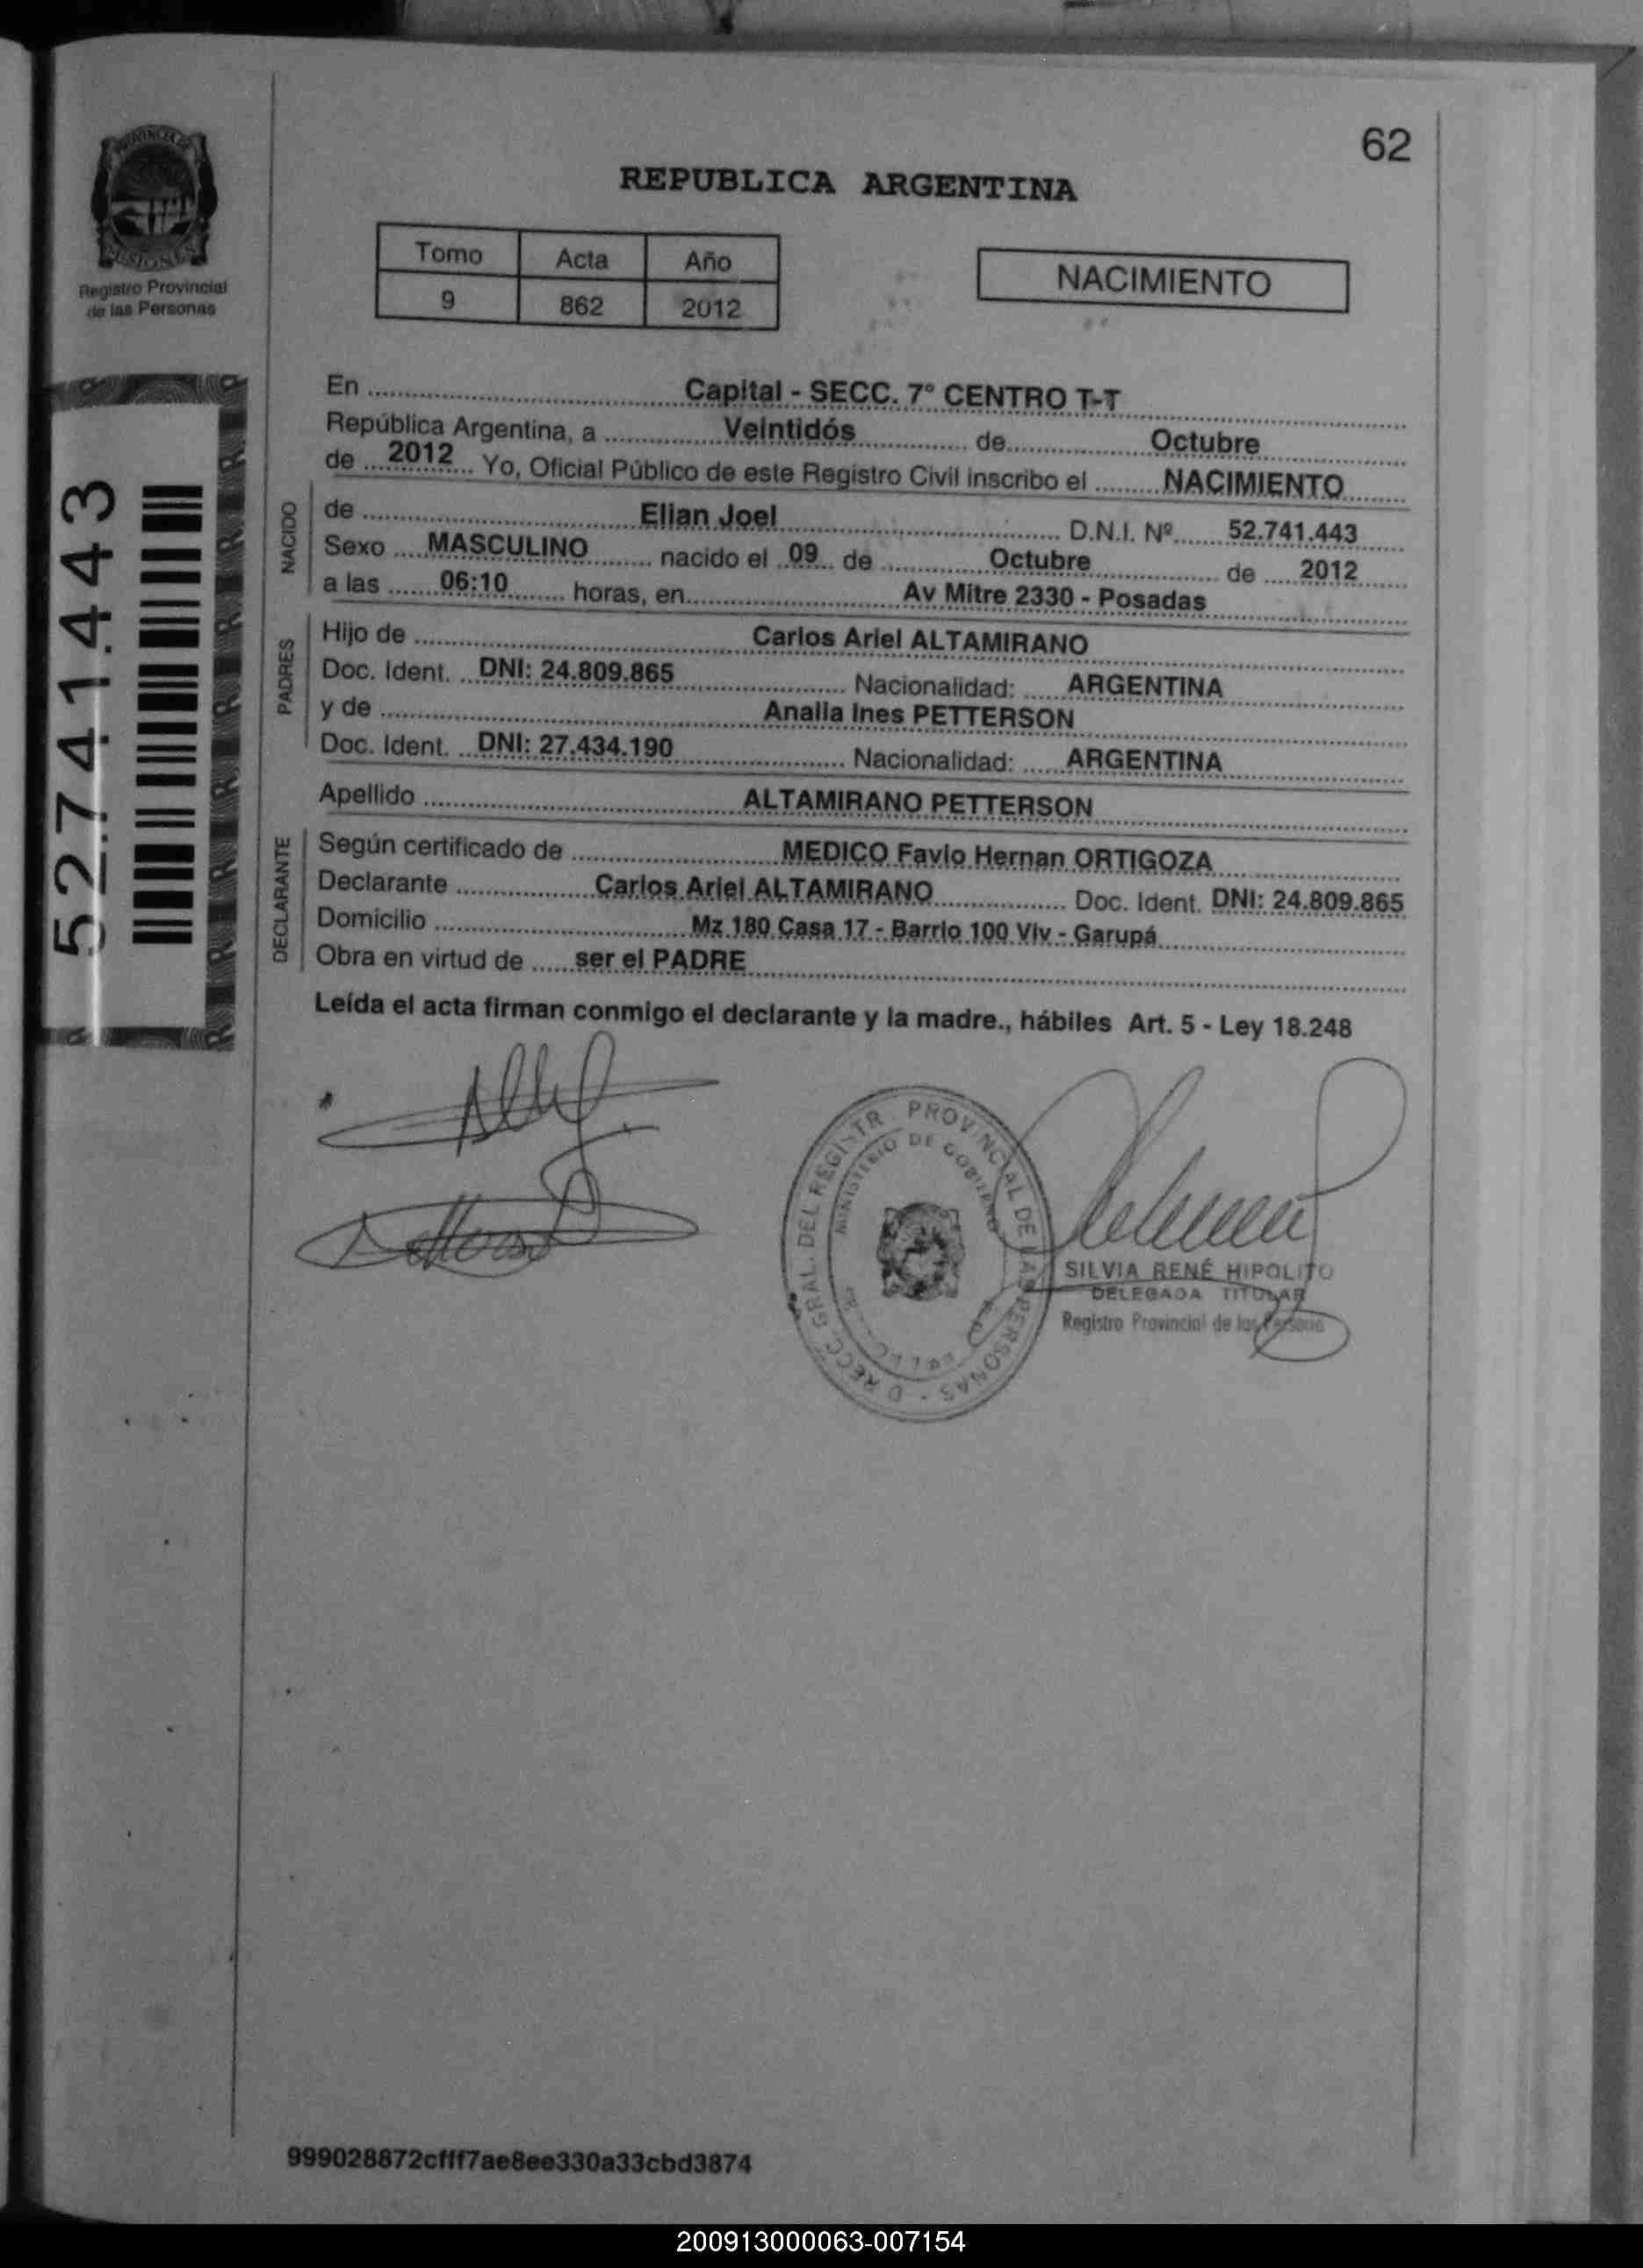 62
REPUBLICA ARGENTINA
PROVINCIA DE
MISIONES
Registro Provincial
de las Personas
Tomo Acta Año
9 862 2012
NACIMIENTO
52.741.443
En Capital - SECC. 7° CENTRO T-T
República Argentina, a Veintidós de Octubre
de 2012 Yo, Oficial Público de este Registro Civil inscribo el NACIMIENTO
NACIDO
de Elian Joel D.N.I. Nº 52.741.443
Sexo MASCULINO nacido el 09 de Octubre de 2012
a las 06:10 horas, en Av Mitre 2330 - Posadas
PADRES
Hijo de Carlos Ariel ALTAMIRANO
Doc. Ident. DNI: 24.809.865 Nacionalidad: ARGENTINA
y de Analia Ines PETTERSON
Doc. Ident. DNI: 27.434.190 Nacionalidad: ARGENTINA
Apellido ALTAMIRANO PETTERSON
DECLARANTE
Según certificado de MEDICO Favio Hernan ORTIGOZA
Declarante Carlos Ariel ALTAMIRANO Doc. Ident. DNI: 24.809.865
Domicilio Mz 180 Casa 17 - Barrio 100 Viv - Garupá
Obra en virtud de ser el PADRE
Leída el acta firman conmigo el declarante y la madre., hábiles Art. 5 - Ley 18.248
PROVINCIAL DE LAS PERSONAS
MINISTERIO DE GOBIERNO
SILVIA RENÉ HIPOLITO
DELEGADA TITULAR
Registro Provincial de las
999028872cfff7ae8ee330a33cbd3874
200913000063-007154